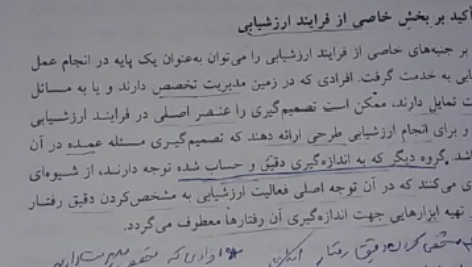 أکید بر بخش خاصی از فرایند ارزشیابی
بر جنبه‌های خاصی از فرایند ارزشیابی را می‌توان به‌عنوان یک پایه در انجام عمل
ابی به خدمت گرفت. افرادی که در زمین مدیریت تخصص دارند و یا به مسائل
ت تمایل دارند، ممکن است تصمیم‌گیری را عنصر اصلی در فرایند ارزشیابی
و برای انجام ارزشیابی طرحی ارائه دهند که تصمیم‌گیری مسئله عمده در آن
اشد. گروه دیگر که به اندازه‌گیری دقیق و حساب شده توجه دارند، از شیوه‌ای
ی می‌کنند که در آن توجه اصلی فعالیت ارزشیابی به مشخص‌کردن دقیق رفتار
تهیه ابزارهایی جهت اندازه‌گیری آن رفتارها معطوف می‌گردد.
مشخص کردن دقیق رفتار افرادی که تخصص مدیریت دارند